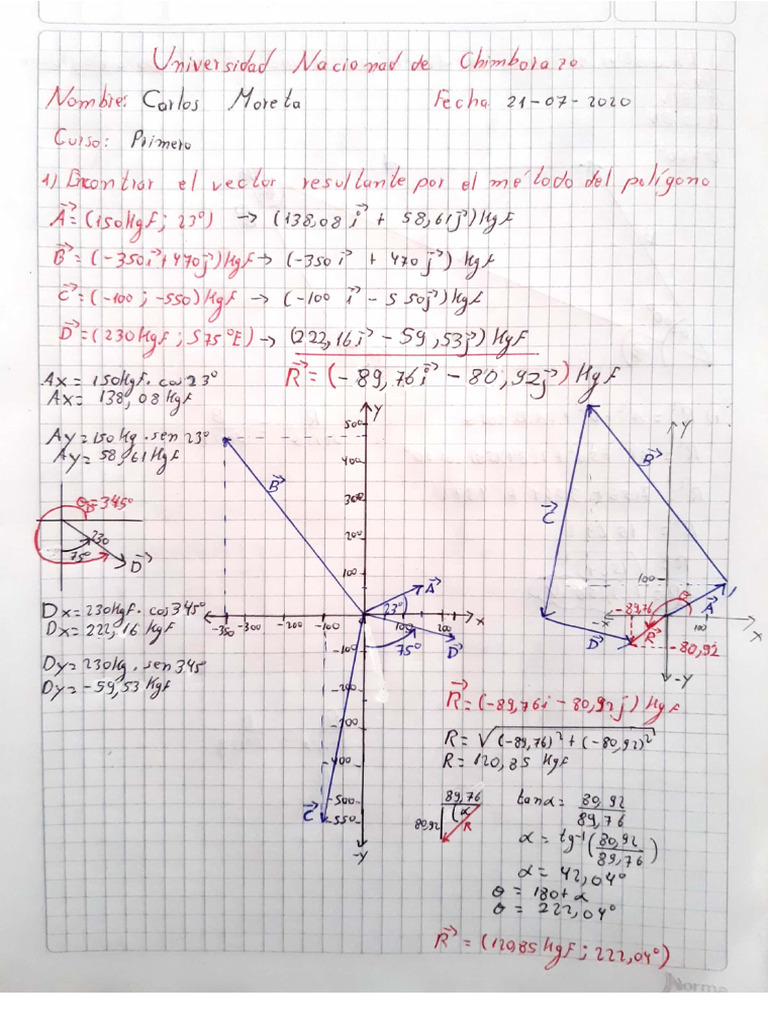 Universidad Nacional de Chimborazo
Nombre: Carlos Moreta Fecha 21-07-2020
Curso: Primero
1) Encontrar el vector resultante por el método del polígono
A⃗ = (150Kgf; 23°) → (138,08 i⃗ + 58,61j⃗) Kgf
B⃗ = (-350i⃗+470j⃗)Kgf → (-350 i⃗ + 470 j⃗) Kgf
C⃗ = (-100 ; -550) Kgf → (-100 i⃗ - 550j⃗) Kgf
D⃗ = (230 Kgf ; S75°E) → (222,16i⃗ - 59,53j⃗) Kgf
R⃗ = (-89,76i⃗ - 80,92j⃗) Kgf
Ax = 150Kgf. cos 23°
Ax = 138,08 Kgf
Ay = 150 Kg . sen 23°
Ay = 58,61 Kgf
θD = 345°
230
75°
D⃗
Dx = 230 Kgf. cos 345°
Dx = 222,16 Kgf
Dy = 230 Kg . sen 345
Dy = -59,53 Kgf
Y
500
400
300
200
100
B⃗
A⃗
23°
-350 -300 -200 -100 0 100 x
75°
D⃗
-100
-200
-300
-400
-500
-550
C⃗
-Y
Y
B⃗
C⃗
100
-89,76
θ
A⃗
-x
R⃗
100
x
D⃗
-80,92
-Y
R⃗ = (-89,76i - 80,92j) Kgf
R = √(-89,76)² + (-80,92)²
R = 120,85 Kgf
89,76
80,92
α
R
tanα = 80,92
89,76
α = tg⁻¹(80,92
89,76)
α = 42,04°
θ = 180 + α
θ = 222,04°
R⃗ = (120,85 Kgf ; 222,04°)
Norma